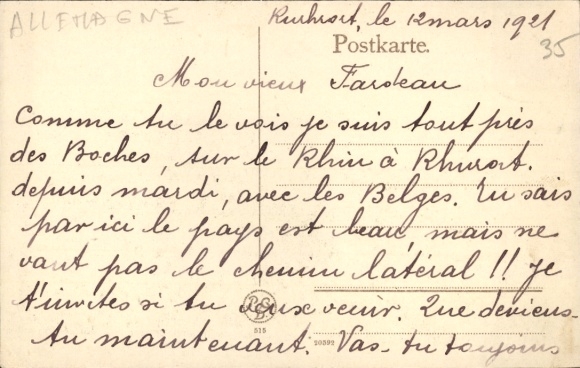 ALLEMAGNE
Ruhrort, le 12 mars 1921
Postkarte.
35
Mon vieux Fardeau
Comme tu le vois je suis tout près
des Boches, sur le Rhin à Rhurort.
depuis mardi, avec les Belges. Tu sais
par ici le pays est beau, mais ne
vaut pas le chemin latéral !! Je
t'invites si tu veux venir. Que deviens-
515
tu maintenant. Vas-tu toujours
20392